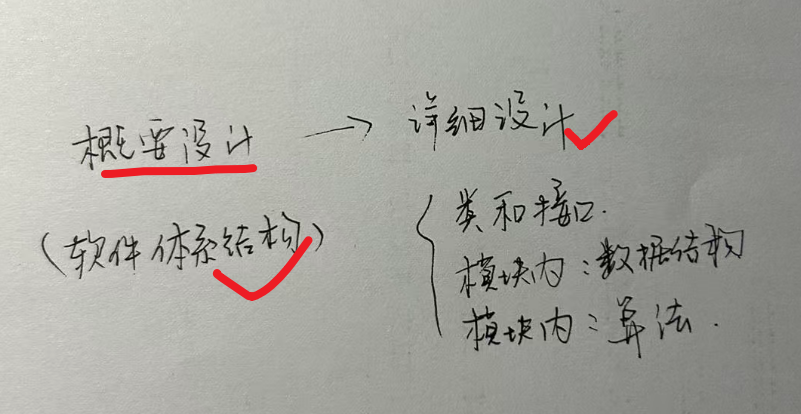 概要设计 → 详细设计
(软件体系结构)
{ 类和接口.
模块内:数据结构
模块内:算法.